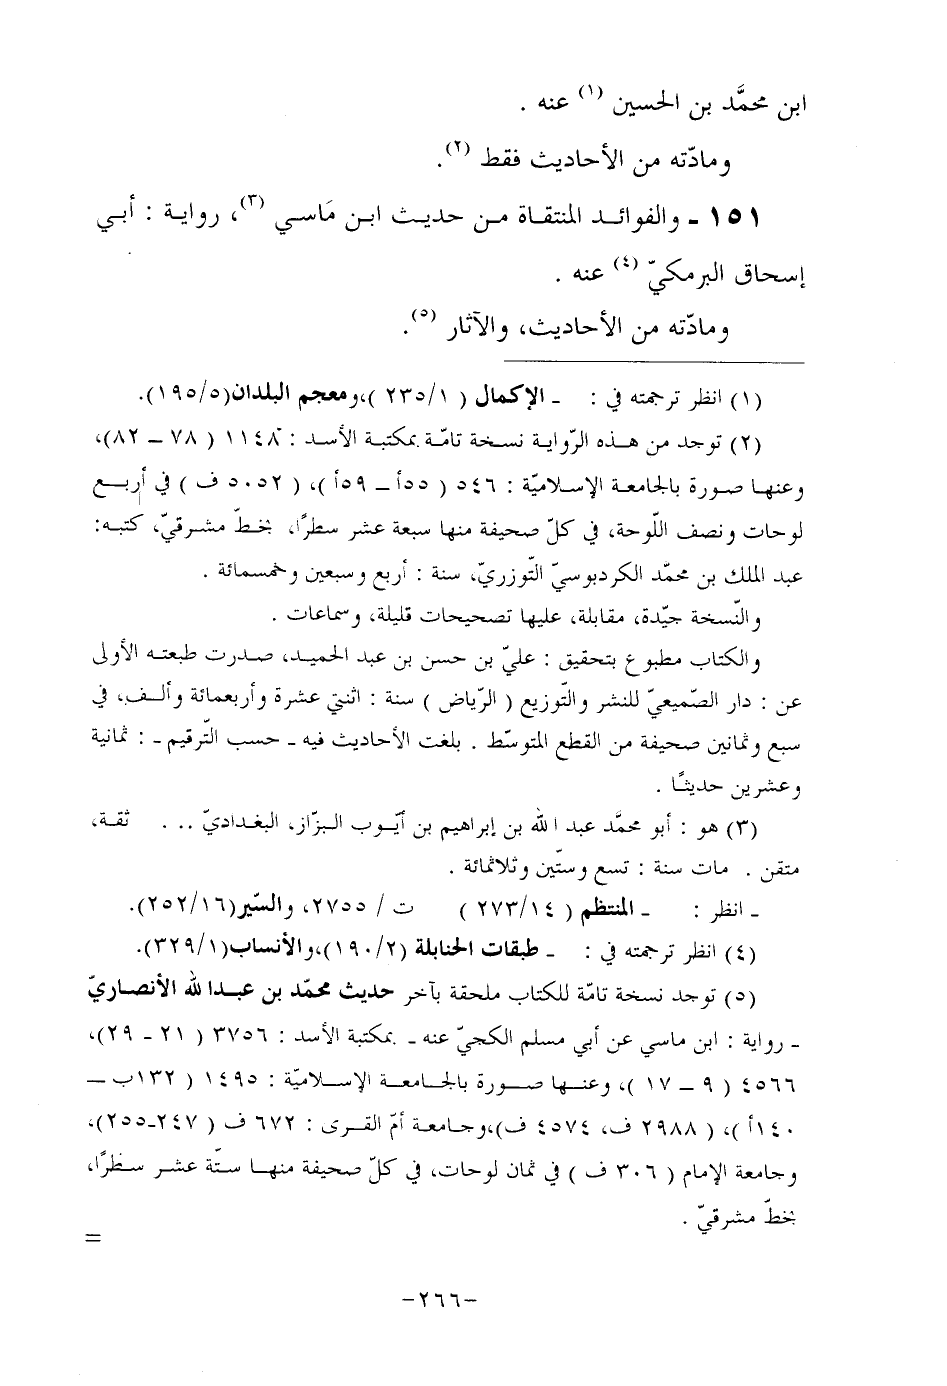 ابن محمَّد بن الحسين (١) عنه .
ومادّته من الأحاديث فقط (٢).
١٥١ ـ والفوائد المنتقاة من حديث ابن مَاسي (٣)، رواية : أبي
إسحاق البرمكيّ (٤) عنه .
ومادّته من الأحاديث، والآثار (٥).
(١) انظر ترجمته في : ـ الإكمال ( ٢٣٥/١ )،ومعجم البلدان(١٩٥/٥).
(٢) توجد من هذه الرّواية نسخة تامّة بمكتبة الأسد : ١١٤٨ ( ٧٨ – ٨٢)،
وعنها صورة بالجامعة الإسلاميّة : ٥٤٦ ( ٥٥أ – ٥٩أ )، ( ٥٠٥٢ ف ) في أربع
لوحات ونصف اللّوحة، في كلّ صحيفة منها سبعة عشر سطرًا، بخطّ مشرقيّ، كتبه:
عبد الملك بن محمّد الكردبوسيّ التّوزريّ، سنة : أربع وسبعين وخمسمائة .
والنّسخة جيّدة، مقابلة، عليها تصحيحات قليلة، وسماعات .
والكتاب مطبوع بتحقيق : عليّ بن حسن بن عبد الحميد، صدرت طبعته الأولى
عن : دار الصّميعيّ للنشر والتّوزيع ( الرّياض ) سنة : اثنتي عشرة وأربعمائة وألف، في
سبع وثمانين صحيفة من القطع المتوسّط . بلغت الأحاديث فيه ـ حسب التّرقيم ـ : ثمانية
وعشرين حديثًا .
(٣) هو : أبو محمَّد عبد الله بن إبراهيم بن أيّوب البزّاز، البغداديّ .. . ثقة،
متقن . مات سنة : تسع وستّين وثلاثمائة .
ـ انظر : ـ المنتظم ( ٢٧٣/١٤ ) ت / ٢٧٥٥، والسّير(٢٥٢/١٦).
(٤) انظر ترجمته في : ـ طبقات الحنابلة (١٩٠/٢)،والأنساب(٣٢٩/١).
(٥) توجد نسخة تامّة للكتاب ملحقة بآخر حديث محمّد بن عبدالله الأنصاريّ
ـ رواية : ابن ماسي عن أبي مسلم الكجيّ عنه ـ بمكتبة الأسد : ٣٧٥٦ ( ٢١ - ٢٩)،
٤٥٦٦ ( ٩ – ١٧ )، وعنها صورة بالجامعة الإسلاميّة : ١٤٩٥ ( ١٣٢ب –
١٤٠أ )، ( ٢٩٨٨ ف، ٤٥٧٤ ف)،وجامعة أمّ القرى : ٦٧٢ ف ( ٢٤٧-٢٥٥)،
وجامعة الإمام ( ٣٠٦ ف ) في ثمان لوحات، في كلّ صحيفة منها ستّة عشر سطرًا،
بخطّ مشرقيّ .
=
-٢٦٦-